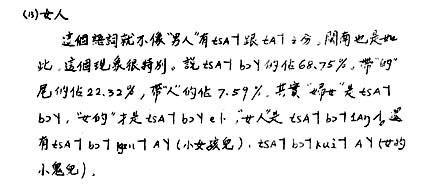 (13)女人
這個語詞就不像"男人"有tsA˥跟tA˥之分,閩南也是如
此,這個現象很特別。說tsA˥ bɔY的佔68.75%,帶"的"
尾的佔22.32%,帶"人"的佔7.59%。其實"婦女"是tsA˥
bɔY,"女的"才是tsA˥ bɔY e˧,"女人"是tsA˥ bɔ˥ lAŋ˧,還
有tsA˥ bɔ˥ AY(小女孩兒)、tsA˥ bɔ˥ kui˥ AY(女的
小鬼兒)。